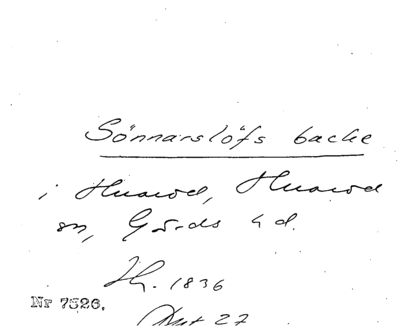 Sönnarslöfs backe
i Huarod, Huarod
sn, Gärds hd.
1836
Nr 7526.
27